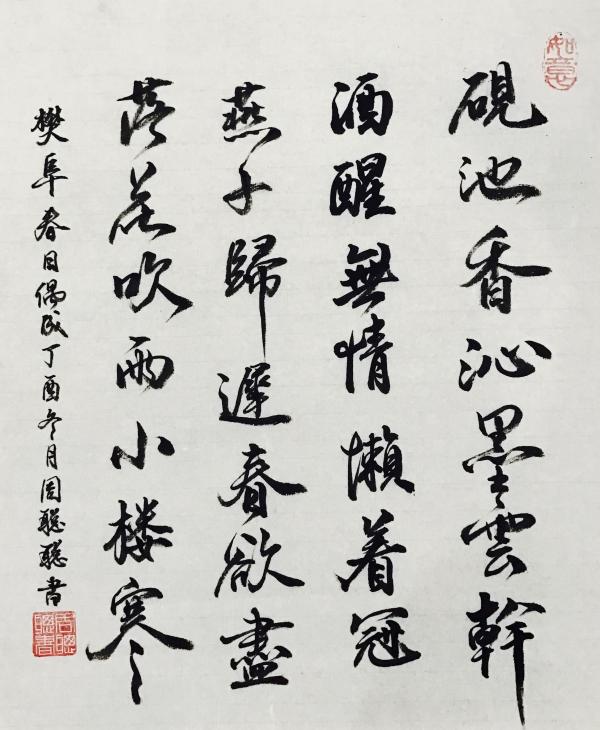 如意
硯池香沁墨雲幹
酒醒無情懶着冠
燕子歸遲春欲盡
落花吹雨小楼寒
樊阜春日偶成丁酉冬月周聪聪書